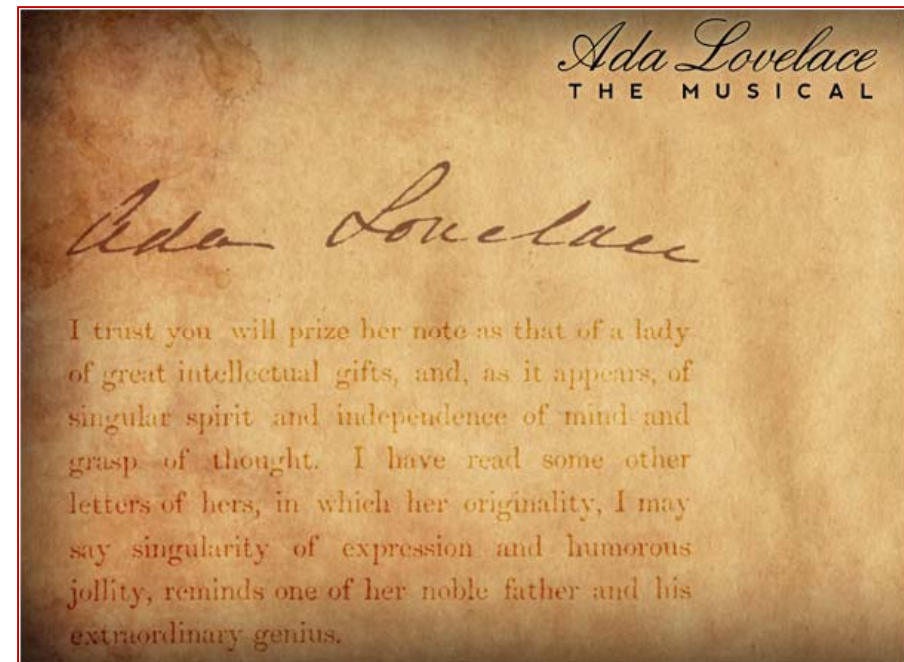 Ada Lovelace
THE MUSICAL
Ada Lovelace
I trust you will prize her note as that of a lady
of great intellectual gifts, and, as it appears, of
singular spirit and independence of mind and
grasp of thought. I have read some other
letters of hers, in which her originality, I may
say singularity of expression and humorous
jollity, reminds one of her noble father and his
extraordinary genius.